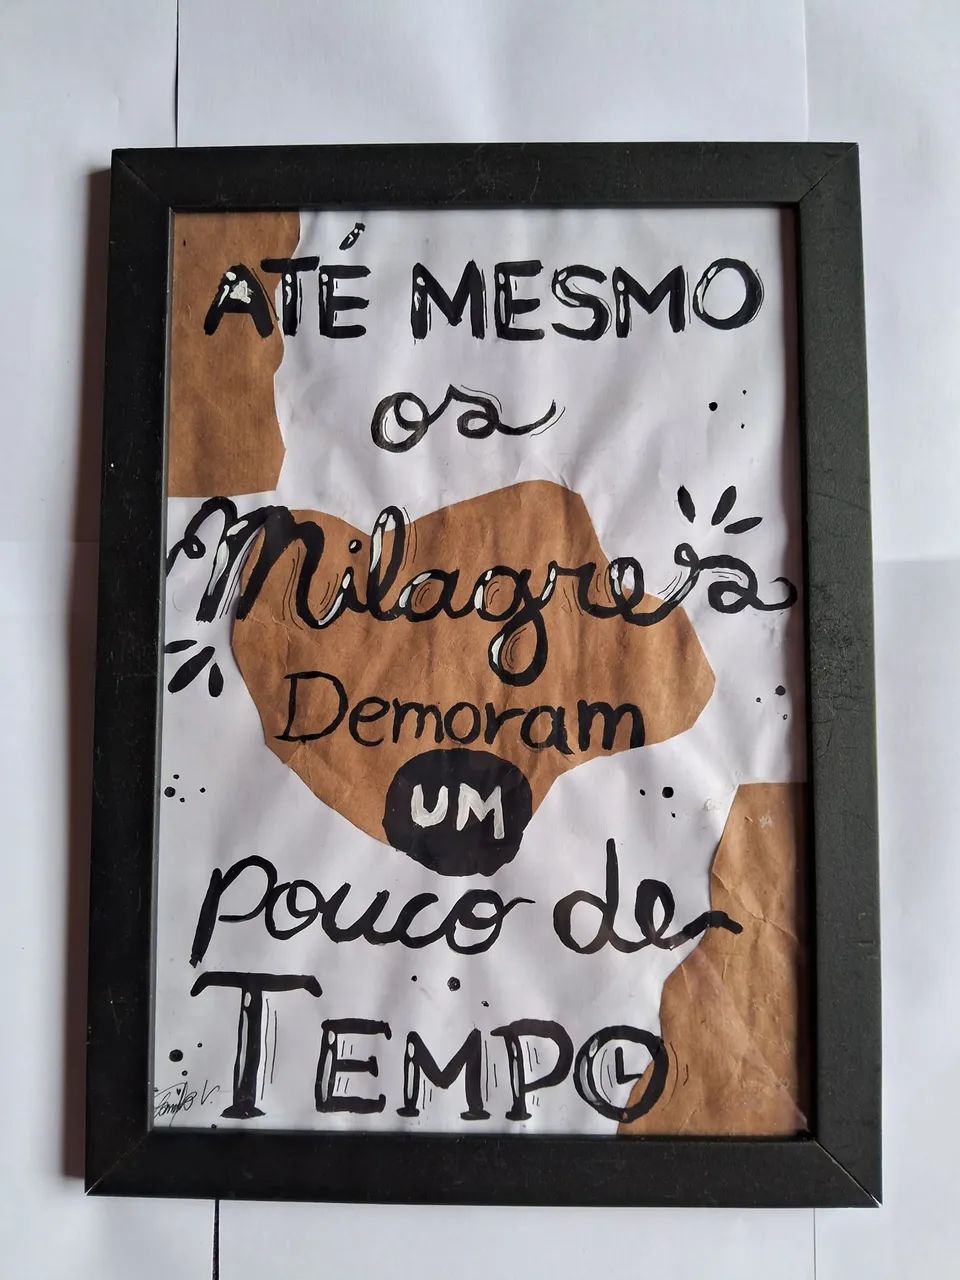 ATÉ MESMO
os
Milagres
Demoram
UM
pouco de
TEMPO